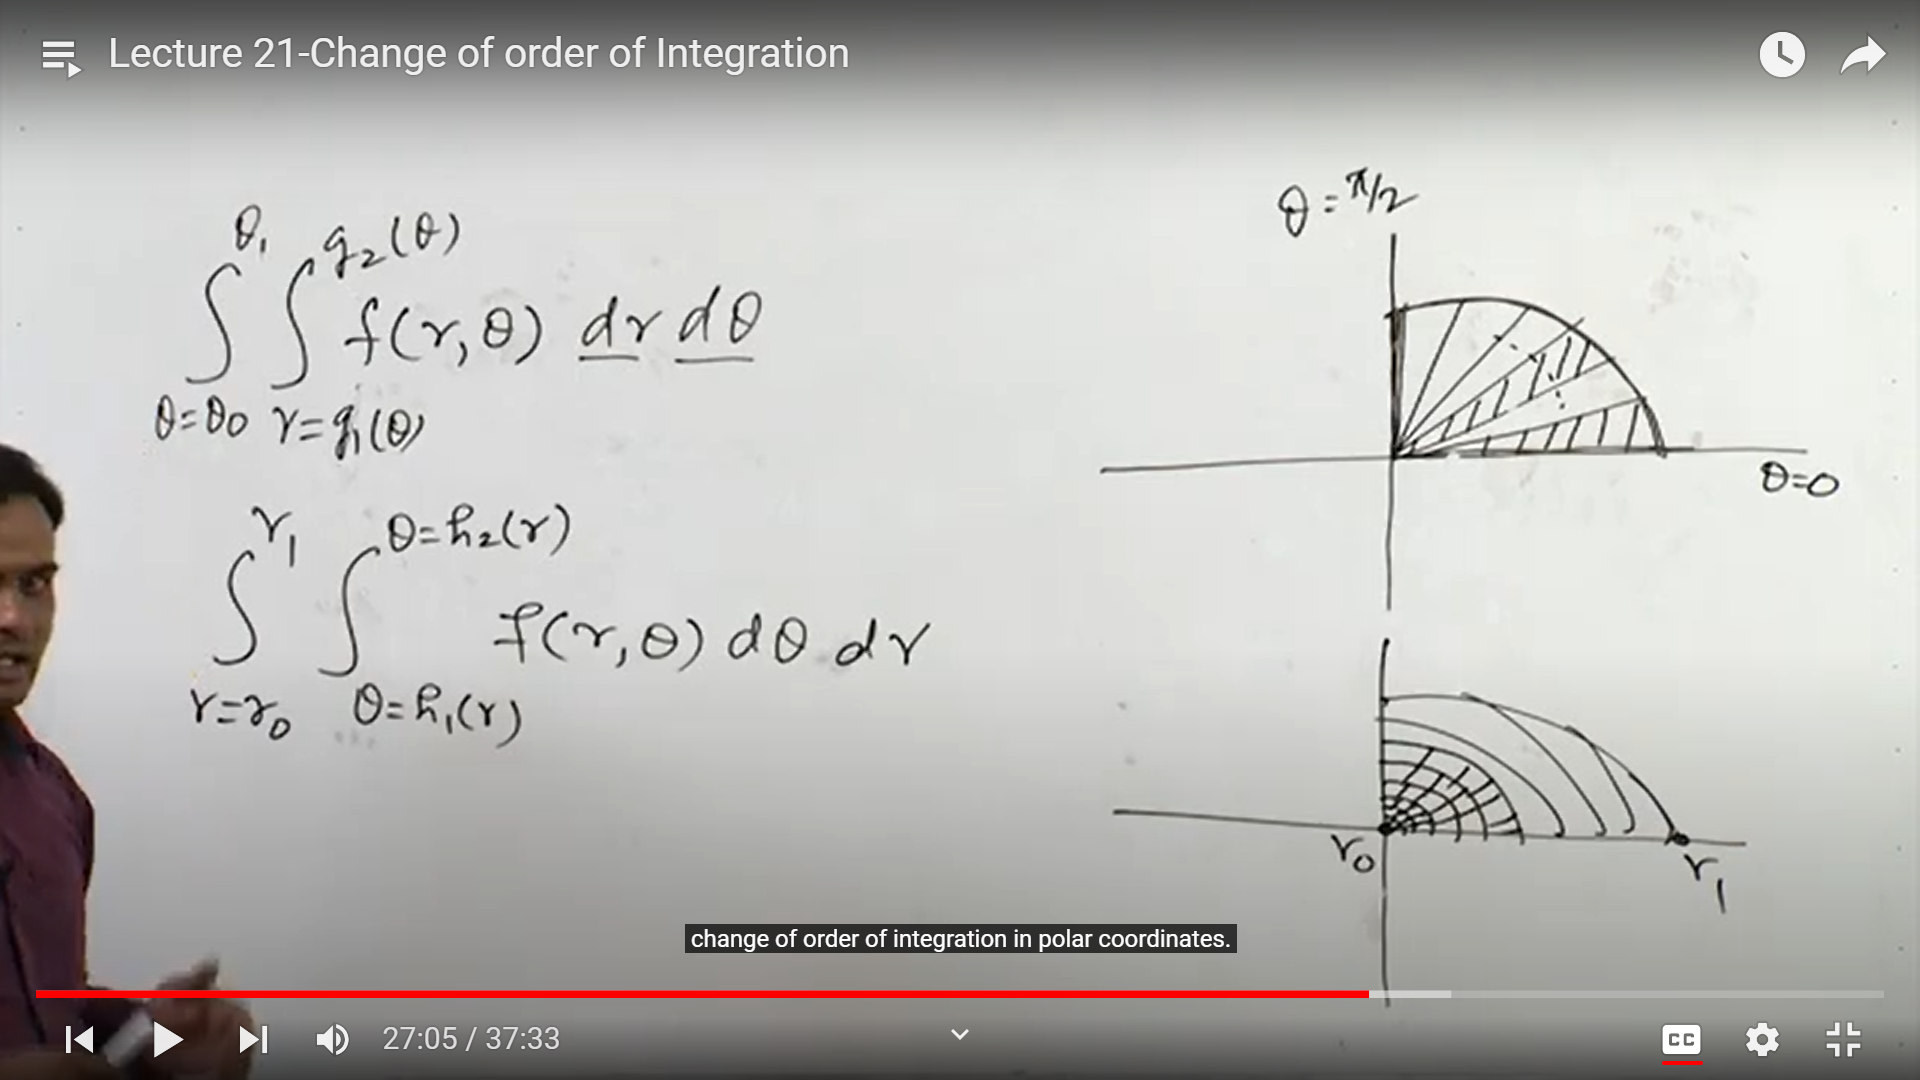 Lecture 21-Change of order of Integration
θ₁ g₂(θ)
∫ ∫ f(r,θ) dr dθ
θ=θ₀ r=g₁(θ)
r₁ θ=h₂(r)
∫ ∫ f(r,θ) dθ dr
r=r₀ θ=h₁(r)
θ=π/2
θ=0
r₀
r₁
change of order of integration in polar coordinates.
27:05 / 37:33
CC